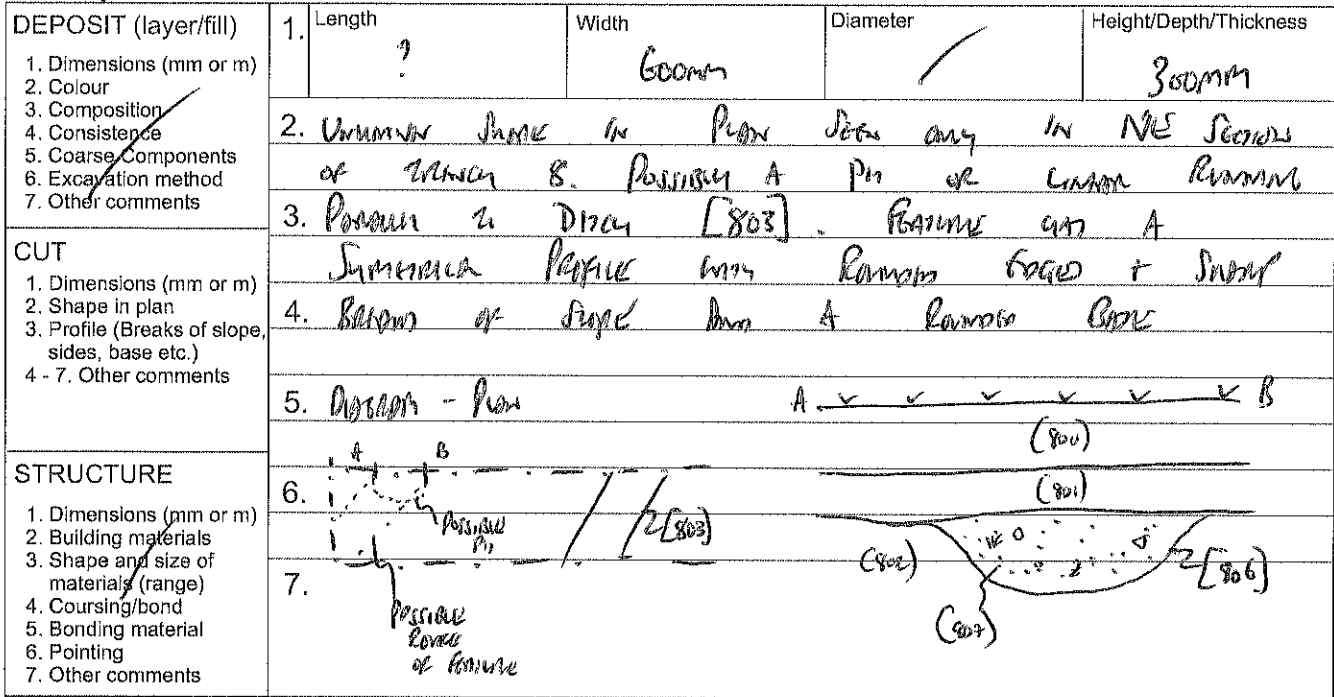 DEPOSIT (layer/fill)
1. Dimensions (mm or m)
2. Colour
3. Composition
4. Consistence
5. Coarse Components
6. Excavation method
7. Other comments
CUT
1. Dimensions (mm or m)
2. Shape in plan
3. Profile (Breaks of slope,
sides, base etc.)
4 - 7. Other comments
STRUCTURE
1. Dimensions (mm or m)
2. Building materials
3. Shape and size of
materials (range)
4. Coursing/bond
5. Bonding material
6. Pointing
7. Other comments
1. Length Width Diameter Height/Depth/Thickness
? 600mm / 300mm
2. UNKNOWN SHAPE IN PLAN SEEN ONLY IN NE SECTION
OF TRENCH 8. POSSIBLY A PIT OR LINEAR RUNNING
3. PARALLEL TO DITCH [803]. FEATURE HAD A
SYMETRICAL PROFILE WITH ROUNDED EDGES + SHARP
4. BREAKS OF SLOPE AND A ROUNDED BASE
5. DIAGRAM - PLAN A B
(800)
A B
6. (801)
POSSIBLE PIT [803] (802) [806]
7.
POSSIBLE
RANGE
OF FEATURE
(807)